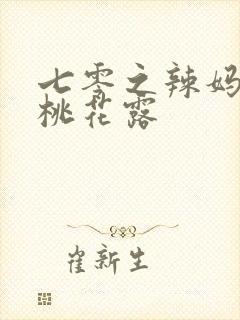 七零之辣妈
桃花露
崔新生